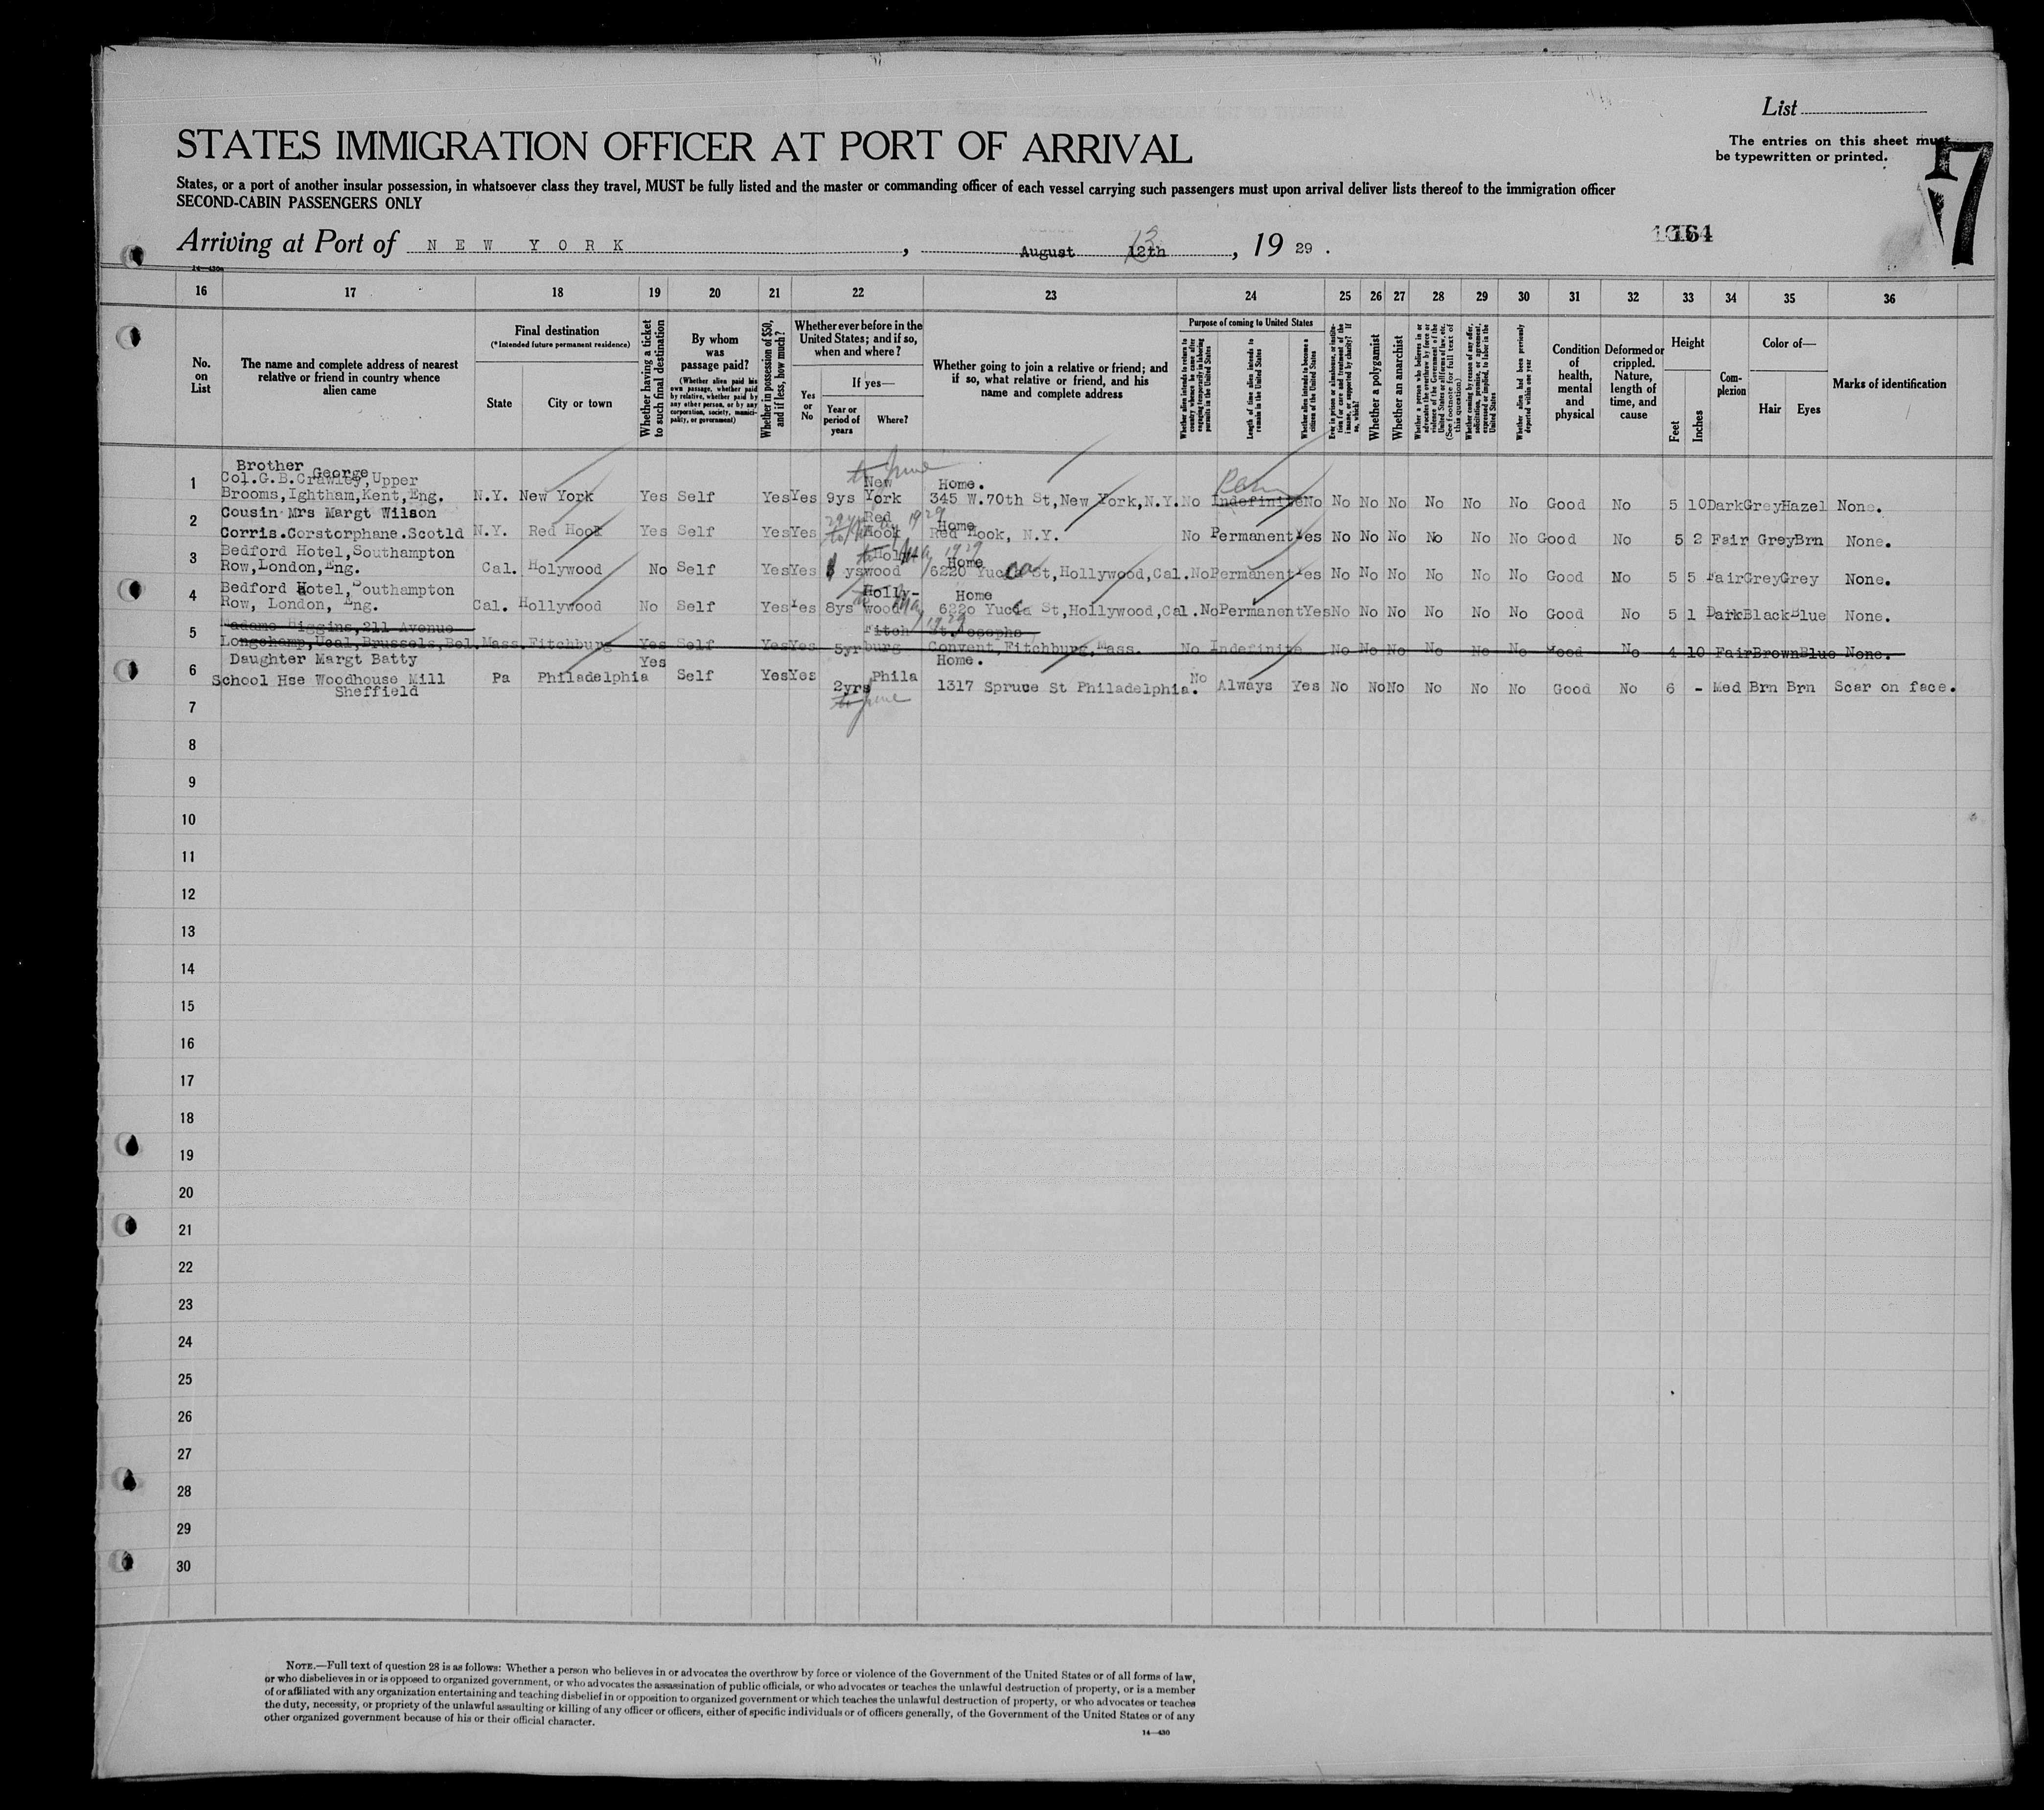 List
STATES IMMIGRATION OFFICER AT PORT OF ARRIVAL
The entries on this sheet must
be typewritten or printed.
17
States, or a port of another insular possession, in whatsoever class they travel, MUST be fully listed and the master or commanding officer of each vessel carrying such passengers must upon arrival deliver lists thereof to the immigration officer
SECOND-CABIN PASSENGERS ONLY
164
Arriving at Port of NEW YORK, August 12th 13, 1929.
14—430
16 17 18 19 20 21 22 23 24 25 26 27 28 29 30 31 32 33 34 35 36
No. on List
The name and complete address of nearest relative or friend in country whence alien came
Final destination
(*Intended future permanent residence)
State
City or town
Whether having a ticket to such final destination
By whom was passage paid?
(Whether alien paid his own passage, whether paid by relative, whether paid by any other person, or by any corporation, society, municipality, or government)
Whether in possession of $50, and if less, how much?
Whether ever before in the United States; and if so, when and where?
Yes or No
If yes—
Year or period of years
Where?
Whether going to join a relative or friend; and if so, what relative or friend, and his name and complete address
Purpose of coming to United States
Whether alien intends to return to country whence he came after engaging temporarily in laboring pursuits in the United States
Length of time alien intends to remain in the United States
Whether alien intends to become a citizen of the United States
Ever in prison or almshouse, or institution for care and treatment of the insane, or supported by charity? If so, which?
Whether a polygamist
Whether an anarchist
Whether a person who believes in or advocates the overthrow by force or violence of the Government of the United States or all forms of law, etc. (See footnote for full text of this question)
Whether coming by reason of any offer, solicitation, promise, or agreement, expressed or implied, to labor in the United States
Whether alien had been previously deported within one year
Condition of health, mental and physical
Deformed or crippled. Nature, length of time, and cause
Height
Feet
Inches
Complexion
Color of—
Hair
Eyes
Marks of identification
Brother George
1 Col.G.B.Crawley,Upper
Brooms,Ightham,Kent,Eng. N.Y. New York Yes Self Yes Yes 9ys New York to June Home. 345 W.70th St,New York,N.Y. No Indefinite No No No No No No No Good No 5 10 Dark Grey Hazel None.
2 Cousin Mrs Margt Wilson
Corris.Corstorphane.Scotld N.Y. Red Hook Yes Self Yes Yes Red Hook 1929 Home Red Hook, N.Y. No Permanent Yes No No No No No No Good No 5 2 Fair Grey Brn None.
3 Bedford Hotel,Southampton
Row,London,Eng. Cal. Holywood No Self Yes Yes ys wood 1929 Home 6220 Yucca St,Hollywood,Cal. No Permanent Yes No No No No No No Good No 5 5 Fair Grey Grey None.
4 Bedford Hotel,Southampton
Row, London, Eng. Cal. Hollywood No Self Yes Yes 8ys Hollywood 1929 Home 6220 Yucca St,Hollywood,Cal. No Permanent Yes No No No No No No Good No 5 1 Dark Black Blue None.
5 Madame Biggins,211 Avenue
Longchamp,Ucal,Brussels,Bel. Mass. Fitchburg Yes Self Yes Yes 5yr Fitchburg St.Josephs Convent,Fitchburg,Mass. No Indefinite No No No No No No Good No 4 10 Fair Brown Blue None.
6 Daughter Margt Batty
School Hse Woodhouse Mill
Sheffield Pa Philadelphia Yes Self Yes Yes 2yrs Phila to June Home. 1317 Spruce St Philadelphia. No Always Yes No No No No No No Good No 6 - Med Brn Brn Scar on face.
7
8
9
10
11
12
13
14
15
16
17
18
19
20
21
22
23
24
25
26
27
28
29
30
NOTE.—Full text of question 28 is as follows: Whether a person who believes in or advocates the overthrow by force or violence of the Government of the United States or of all forms of law,
or who disbelieves in or is opposed to organized government, or who advocates the assassination of public officials, or who advocates or teaches the unlawful destruction of property, or is a member
of or affiliated with any organization entertaining and teaching disbelief in or opposition to organized government or which teaches the unlawful destruction of property, or who advocates or teaches
the duty, necessity, or propriety of the unlawful assaulting or killing of any officer or officers, either of specific individuals or of officers generally, of the Government of the United States or of any
other organized government because of his or their official character.
14—430